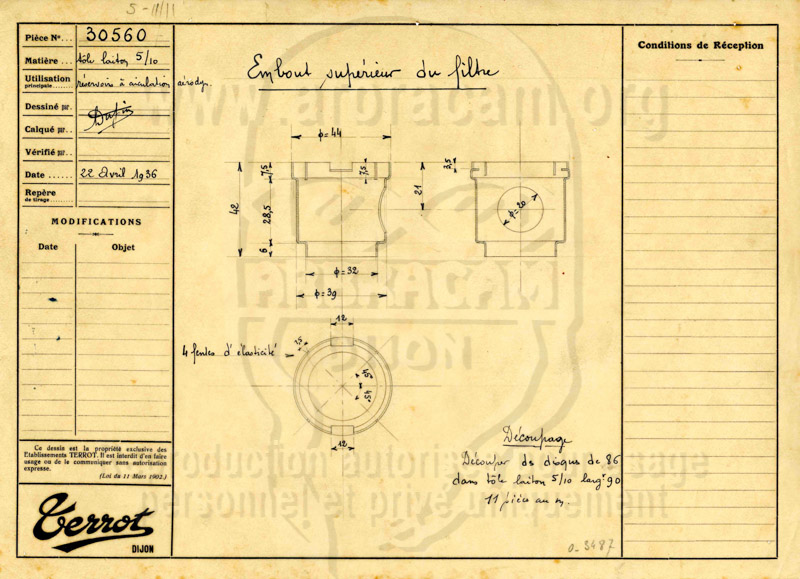 5-11/11
Pièce N°... 30560
Matière ... tôle laiton 5/10
Utilisation principale ...... réservoirs à circulation aérodyn.
Dessiné par.
Calqué par..
Vérifié par..
Date ...... 22 Avril 1936
Repère de tirage ......
MODIFICATIONS
Date Objet
Ce dessin est la propriété exclusive des
Etablissements TERROT. Il est interdit d'en faire
usage ou de le communiquer sans autorisation
expresse.
(Loi du 11 Mars 1902.)
Terrot
DIJON
Embout supérieur du filtre
φ=44
7,5
7,5
42
28,5
6
21
3,5
φ=20
φ=32
φ=39
12
4 fentes d'élasticité
45°
45°
12
Découpage
Découper des disques de 86
dans tôle laiton 5/10 largr 90
11 pièces au m.
0-3487
Conditions de Réception
www.arbracam.org
ARBRACAM
DIJON